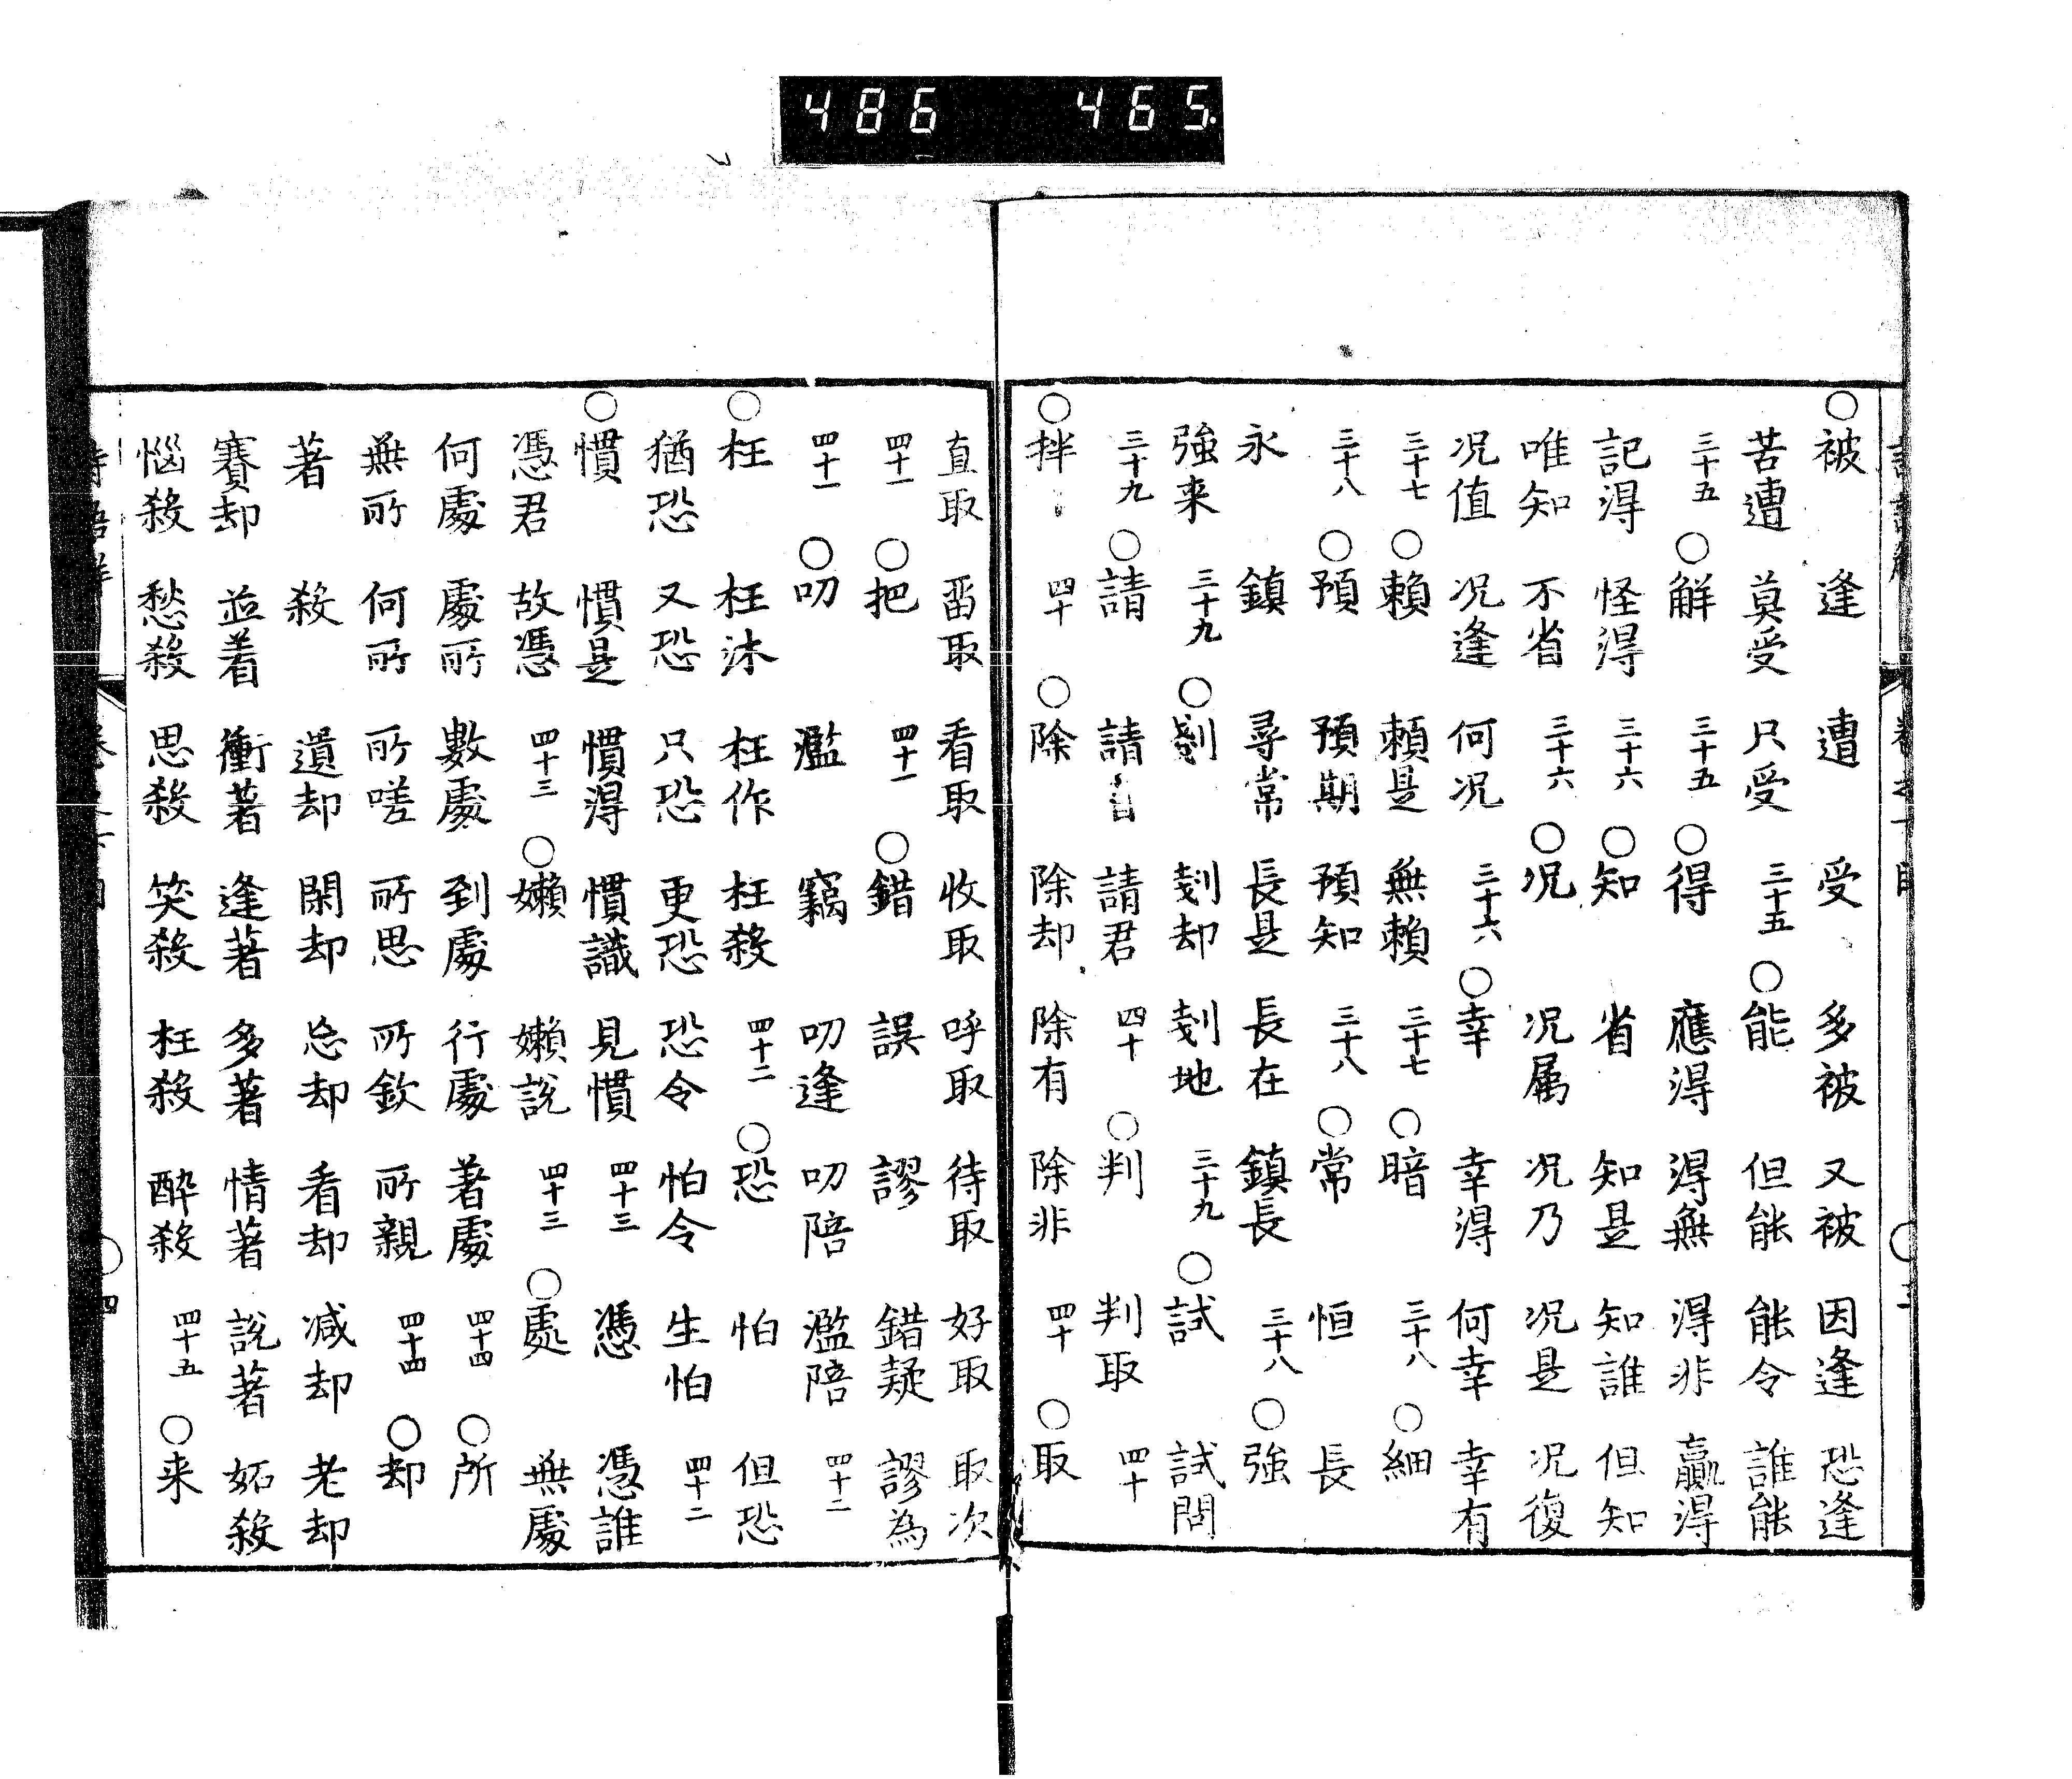 486 465.
○被 逢 遭 受 多被 又被 因逢 恐逢
苦遭 莫受 只受 三十五 ○能 但能 能令 誰能
三十五 ○解 三十五 ○得 應得 得無 得非 贏得
記得 怪得 三十六 ○知 省 知是 知誰 但知
唯知 不省 三十六 ○况 况属 况乃 况是 况復
况值 况逢 何况 三十六 ○幸 幸得 何幸 幸有
三十七 ○賴 賴是 無賴 三十七 ○暗 三十八 ○細
三十八 ○預 預期 預知 三十八 ○常 恒 長
永 鎮 尋常 長是 長在 鎮長 三十八 ○強
強来 三十九 ○剗 剗却 剗地 三十九 ○試 試問
三十九 ○請 請看 請君 四十 ○判 判取 四十
○拌 四十 ○除 除却 除有 除非 四十 ○取
直取 畱取 看取 收取 呼取 待取 好取 取次
四十一 ○把 四十一 ○錯 誤 謬 錯疑 謬為
四十一 ○叨 濫 竊 叨逢 叨陪 濫陪 四十二
○枉 枉沐 枉作 枉殺 四十二 ○恐 怕 但恐
猶恐 又恐 只恐 更恐 恐令 怕令 生怕 四十二
○慣 慣是 慣得 慣識 見慣 四十三 憑 憑誰
憑君 故憑 四十三 ○嬾 嬾說 四十三 ○處 無處
何處 處所 數處 到處 行處 著處 四十四 ○所
無所 何所 所嗟 所思 所欽 所親 四十四 ○却
著 殺 遺却 閑却 忘却 看却 减却 老却
賽却 並着 衝著 逢著 多著 情著 說著 妬殺
惱殺 愁殺 思殺 笑殺 枉殺 酔殺 四十五 ○来